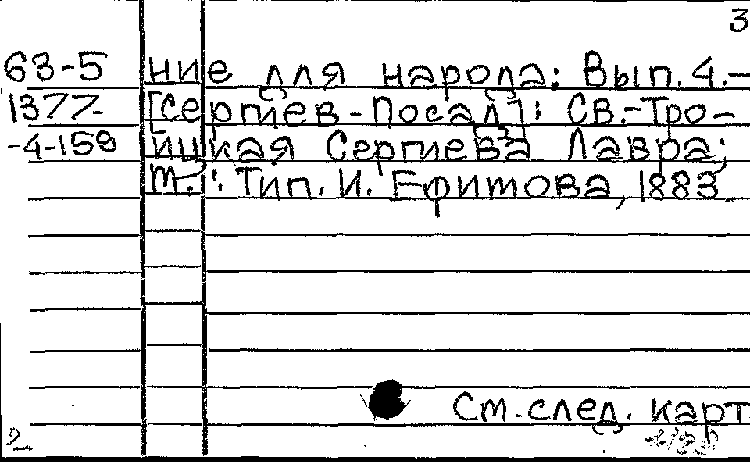 3
63-5 ние для народа: Вып. 4.–
1377- [Сергиев-Посад]: Св.-Тро-
-4-159 ицкая Сергиева Лавра;
м.: Тип. И. Ефимова, 1883
См. след. карт
2